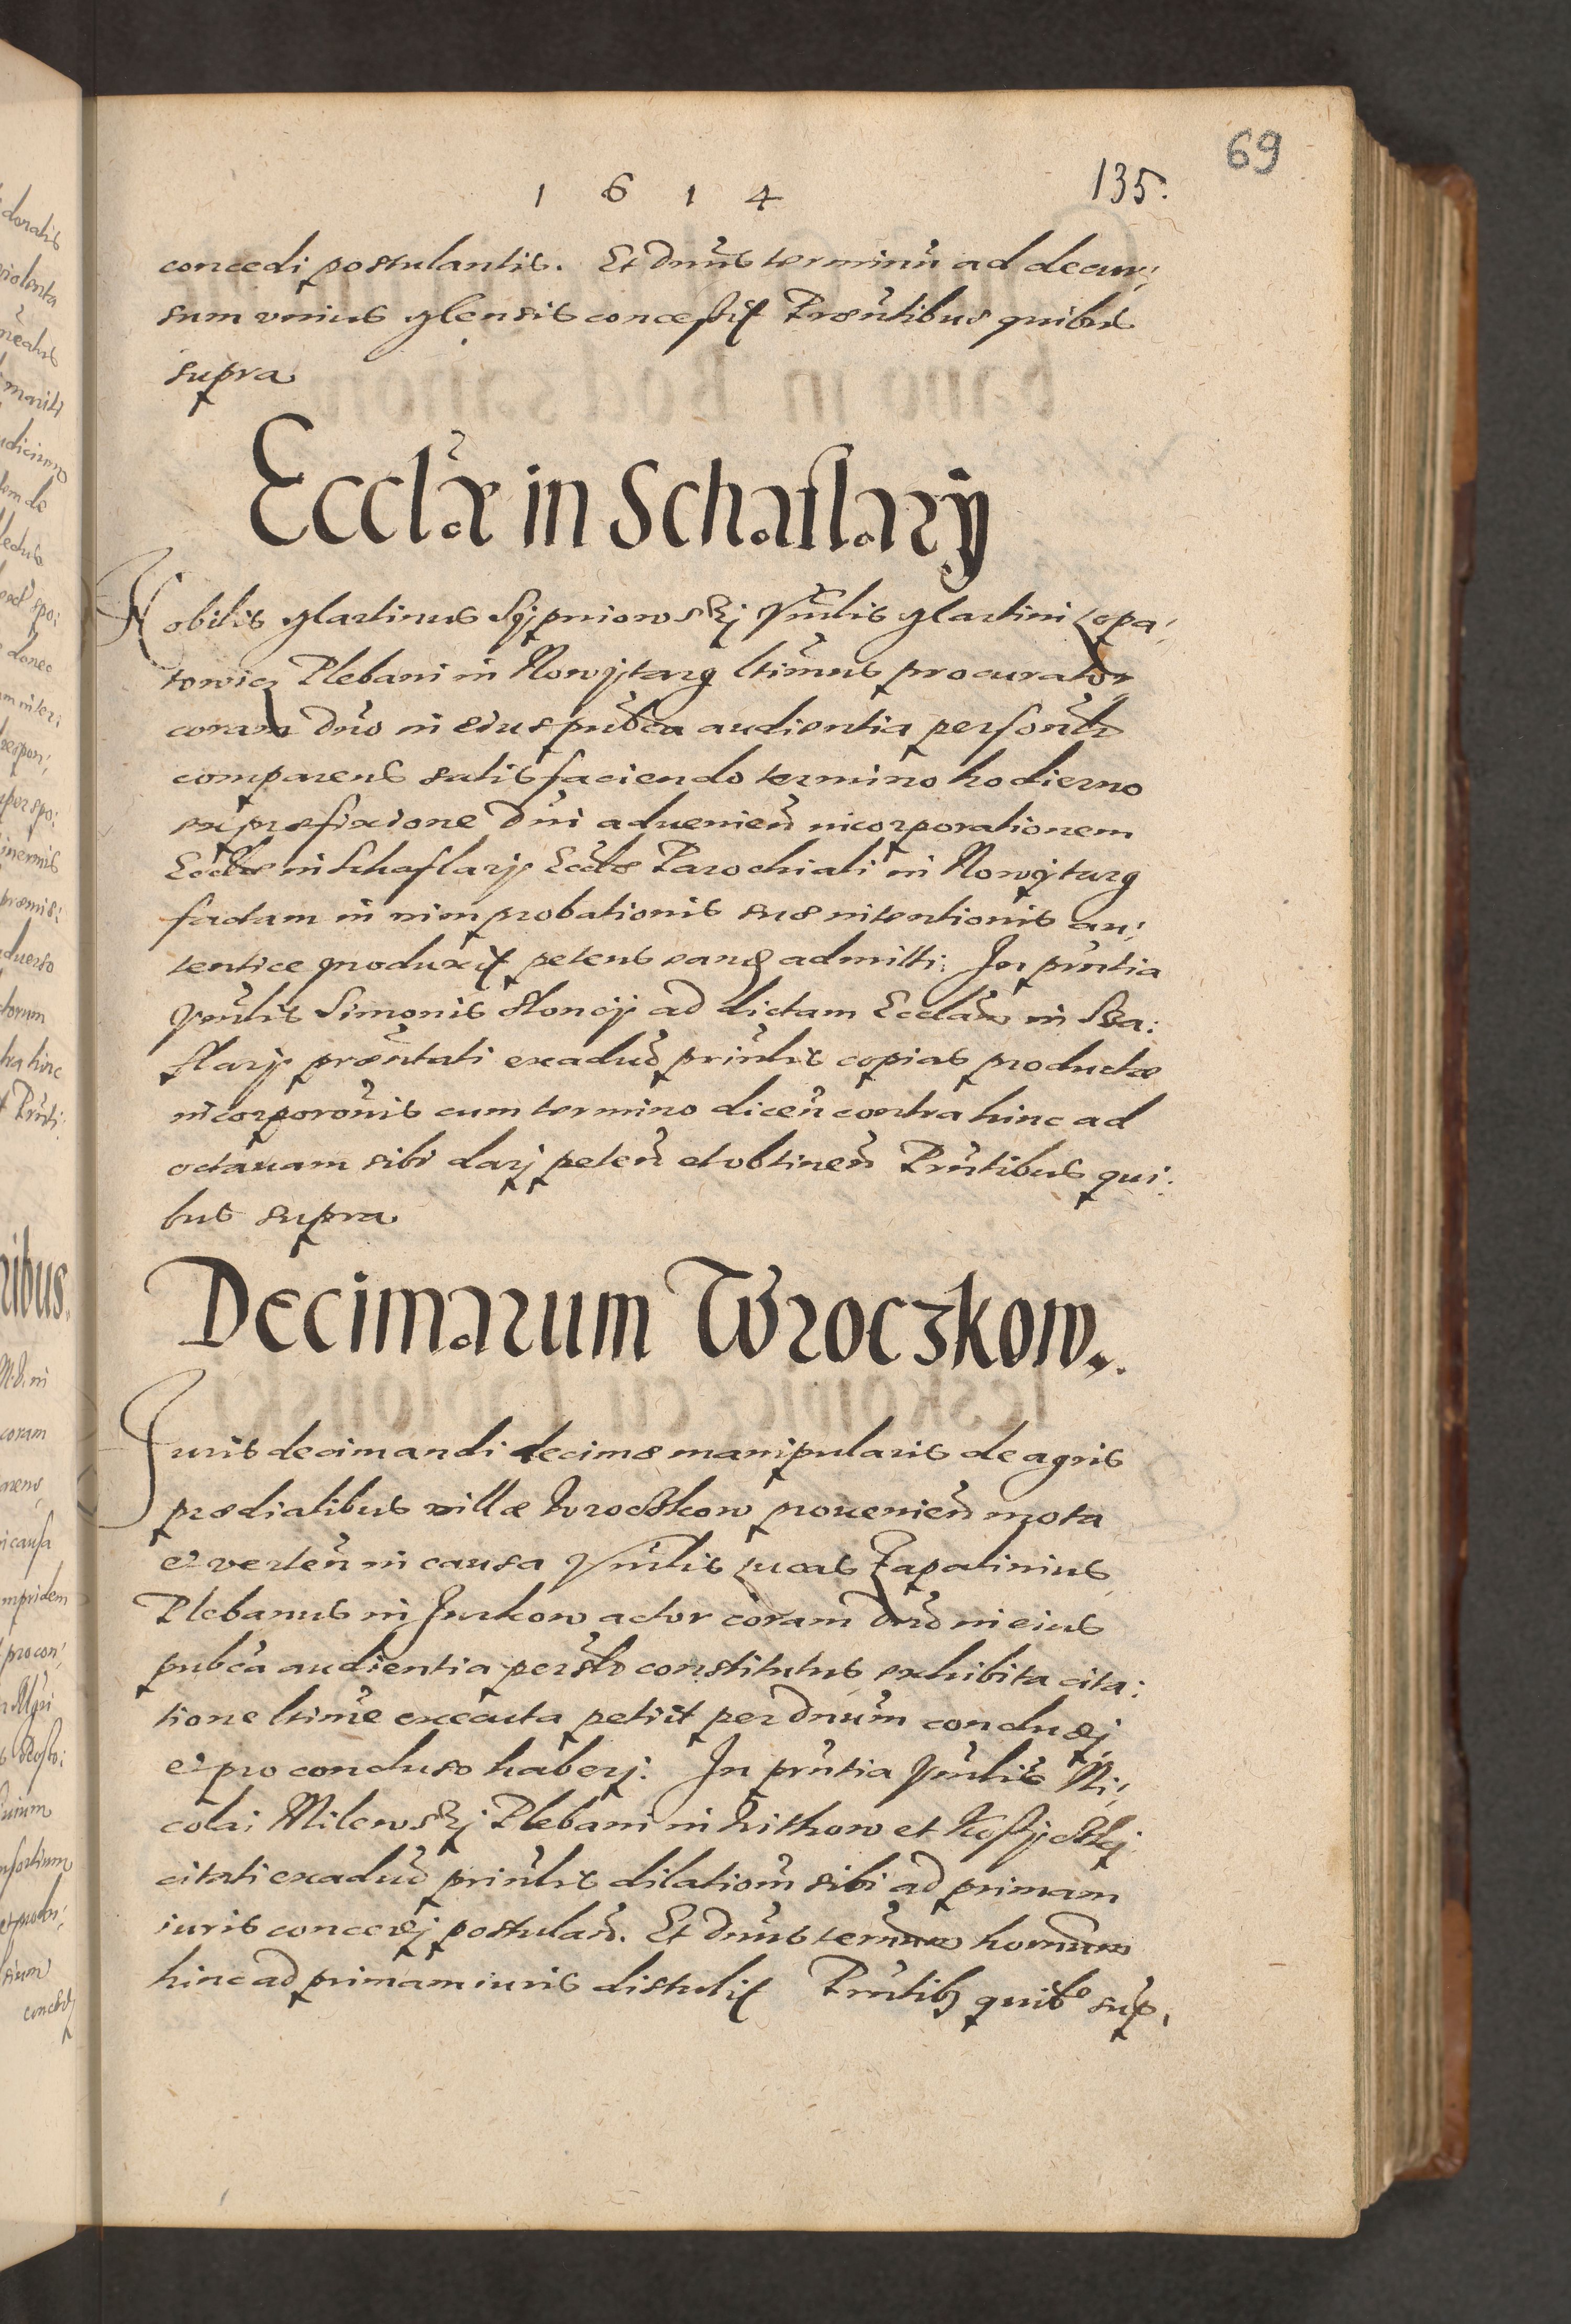 69
1 6 1 4 135.
concedi postulantis. Et Dnus terminu ad decur:
sum unius Mensis concessit Præntibus quibus
supra
Ecclæ in Schaflary
Nobilis Martinus Sypniowski Vnlis Martini Lopa:
towicz Plebani in Nowytarg ltimus procurator
coram Dno in eius pubca audientia personlr
comparens satisfaciendo termino hodierno
ex præfixione Dni aduenien incorporationem
Ecclæ in Schaflary Ecclæ Parochiali in Nowytarg
factam in vim probationis suæ intentionis au:
tentice produxit petens eandem admitti. In pntia
Vnlis Simonis Sloncy ad dictam Ecclam in Sza:
flary præntati ex aduo prinlis copias productæ
incorporonis cum termino dicen contra hinc ad
octauam sibi dari peten et obtinen Prntibus qui:
bus supra
Decimarum Wroczkow.
Juris decimandi decimæ manipularis de agris
prædialibus villæ Wroczkow prouenien mota
et verten in causa Vnlis Lucas Zapalinius
Plebanus in Jurkow actor coram Dno in eius
pubca audientia perslr constitutus exhibita cita:
tione ltime executa petiit per Dnum concludi
et pro concluso haberi. In prntia Vnlis Ni:
colai Milewski Plebani in et
citati ex aduo prinlis dilationem sibi ad primam
iuris concedi postulan. Et Dnus termum hornum
hinc ad primam iuris distulit Prntibus quibs sup.